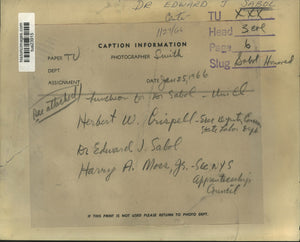 DR EDWARD J SABOL
TU XXX
112466
Head 3 col
Page 6
Slug Sabol Honored
CAPTION INFORMATION
PAPER TU PHOTOGRAPHER Smith
DEPT
ASSIGNMENT DATE Jan 25, 1966
See attached
luncheon for Dr Sabol
Herbert W. Crispell - Exec Deputy Comm
State Labor Dept
Dr Edward J. Sabol
Harry A. Moss, Jr. - Sec NYS
Apprenticeship
Council
IF THIS PRINT IS NOT USED PLEASE RETURN TO PHOTO DEPT.